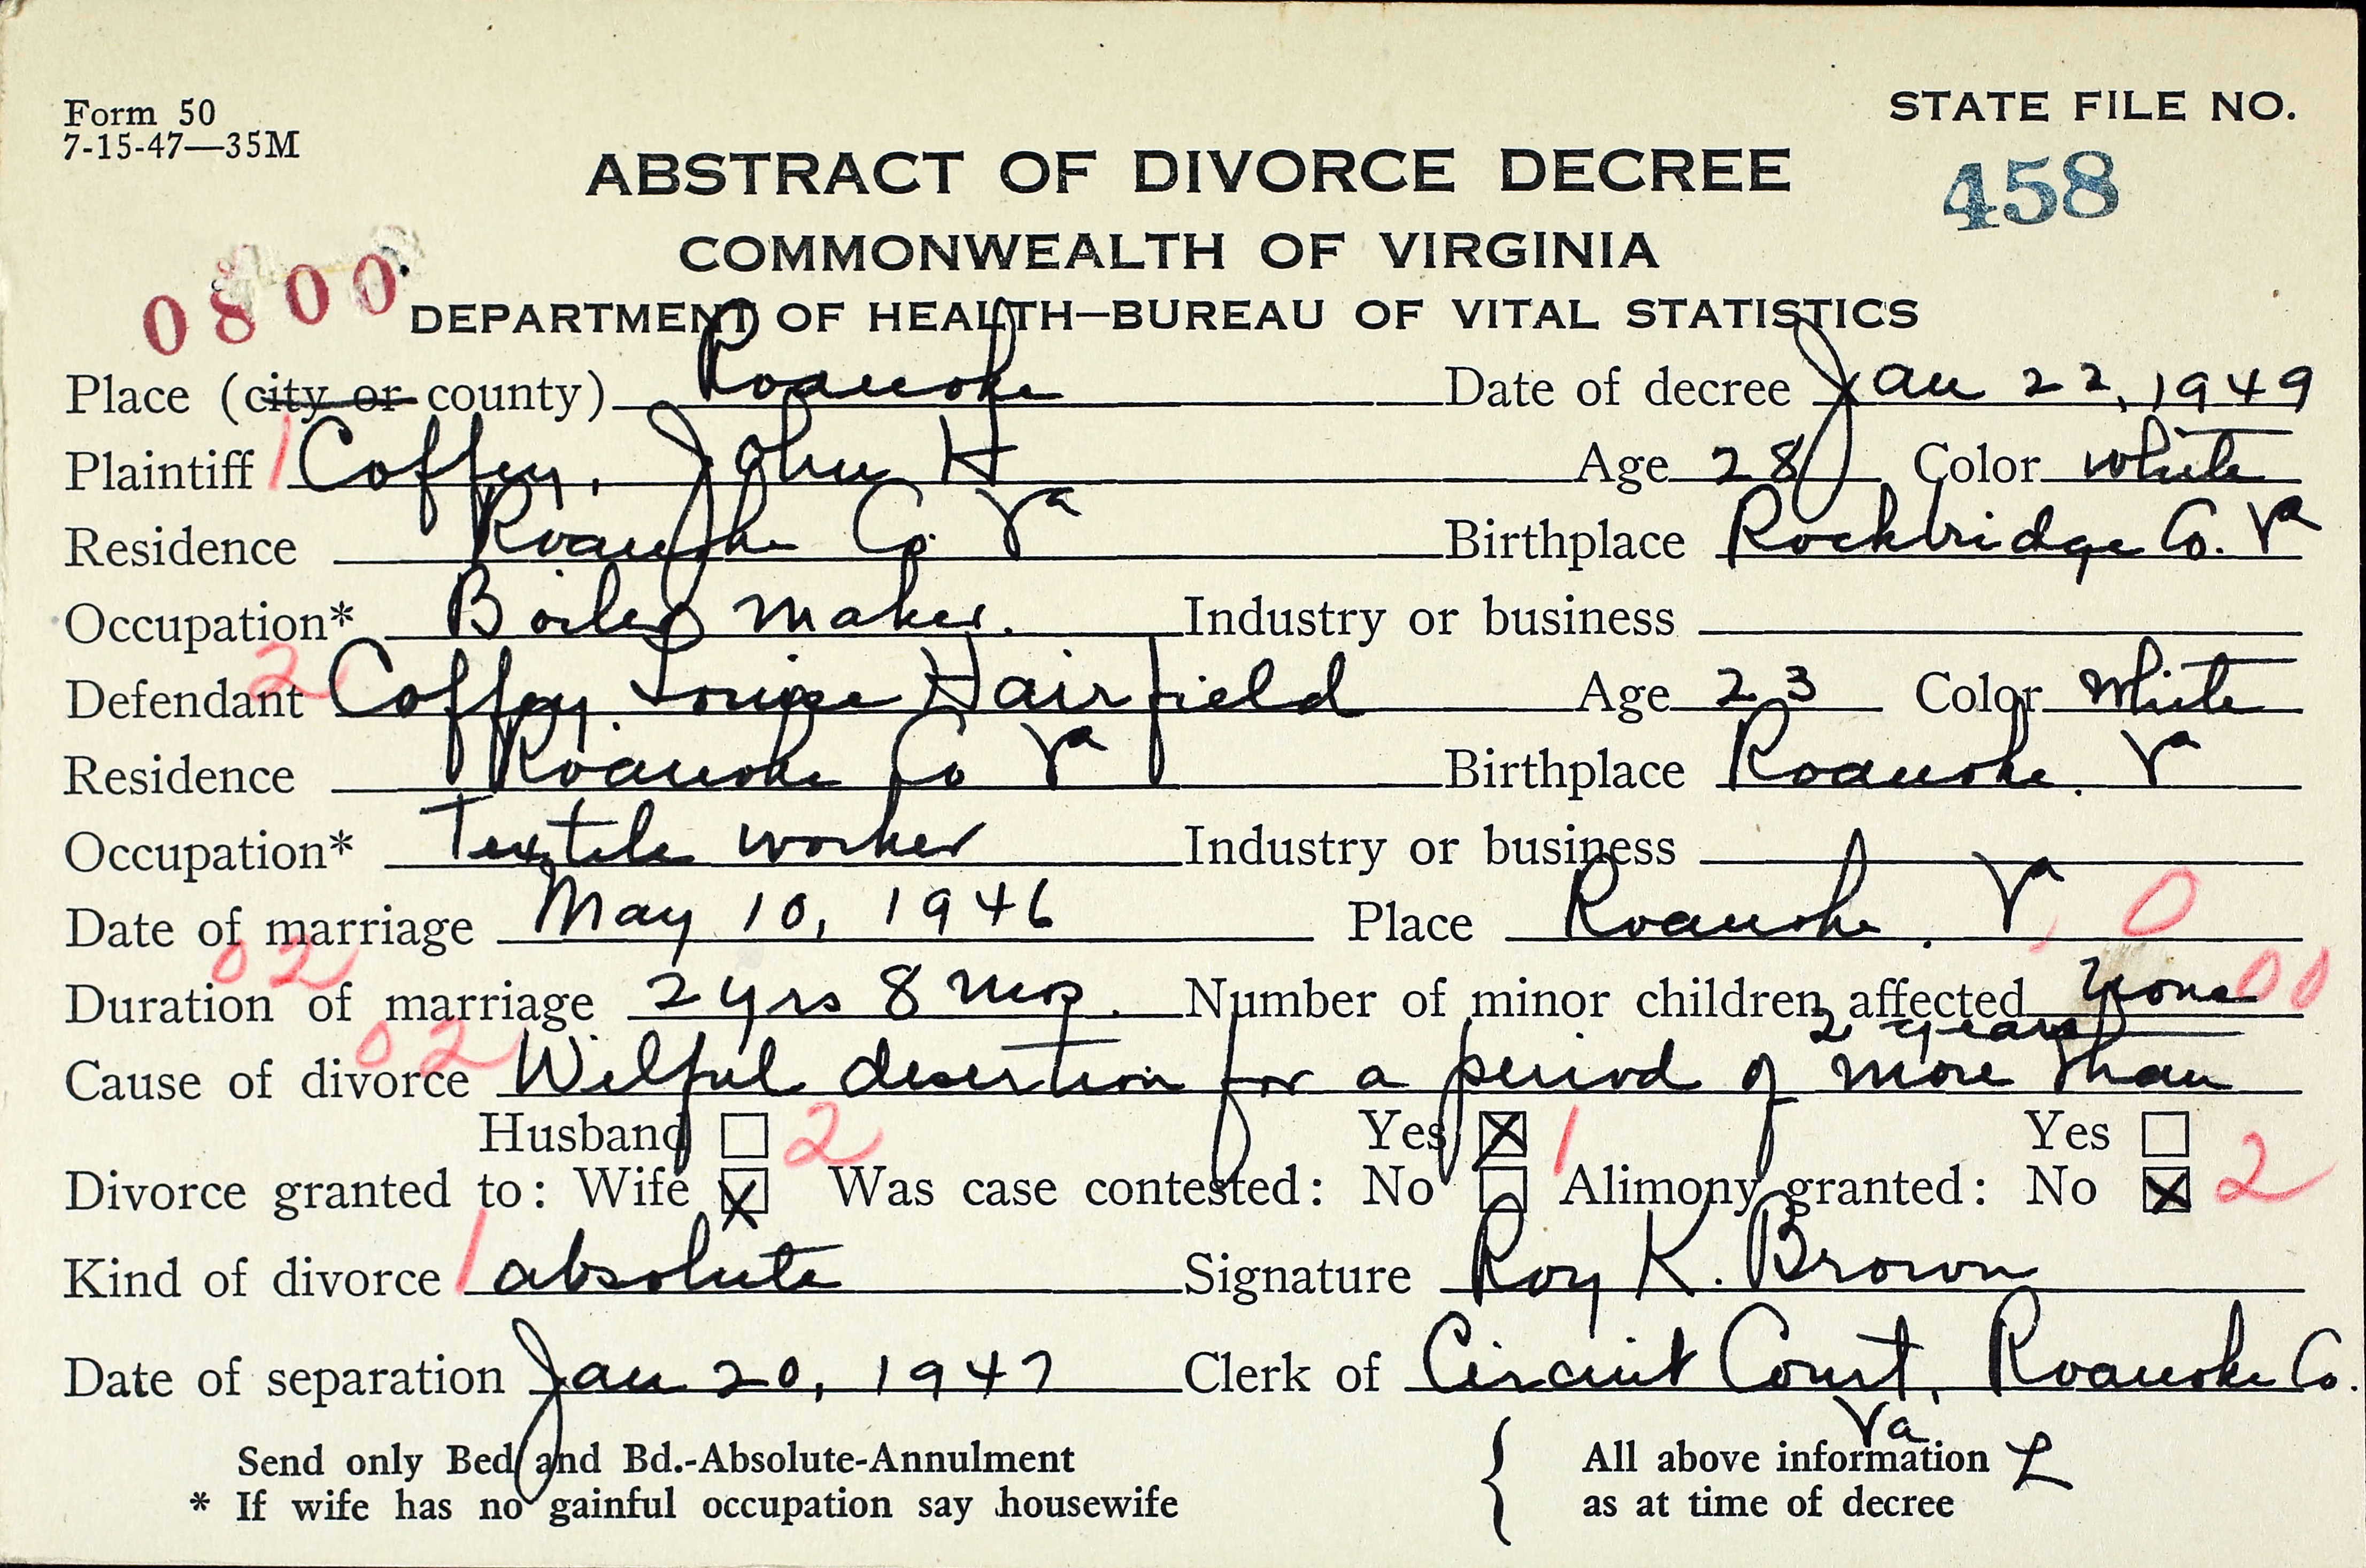 Form 50
7-15-47—35M
STATE FILE NO.
458
ABSTRACT OF DIVORCE DECREE
COMMONWEALTH OF VIRGINIA
0800
DEPARTMENT OF HEALTH—BUREAU OF VITAL STATISTICS
Place (city or county) Roanoke Date of decree Jan 22, 1949
Plaintiff 1 Coffey, John H Age 28 Color White
Residence Roanoke Co. Va Birthplace Rockbridge Co. Va
Occupation* Boiler maker. Industry or business
Defendant 2 Coffey Louise Hairfield Age 23 Color White
Residence Roanoke Co Va Birthplace Roanoke, Va
Occupation* Textile worker Industry or business
Date of marriage May 10, 1946 Place Roanoke, Va 0
02
Duration of marriage 2 yrs 8 mos. Number of minor children affected None 00
02 2 years
Cause of divorce Wilful desertion for a period of more than
Husband 2 Yes X 1 Yes
Divorce granted to: Wife X Was case contested: No Alimony granted: No X 2
Kind of divorce 1 absolute Signature Roy K. Brown
Date of separation Jan 20, 1947 Clerk of Circuit Court, Roanoke Co.
Va
Send only Bed and Bd.-Absolute-Annulment { All above information L
* If wife has no gainful occupation say housewife as at time of decree